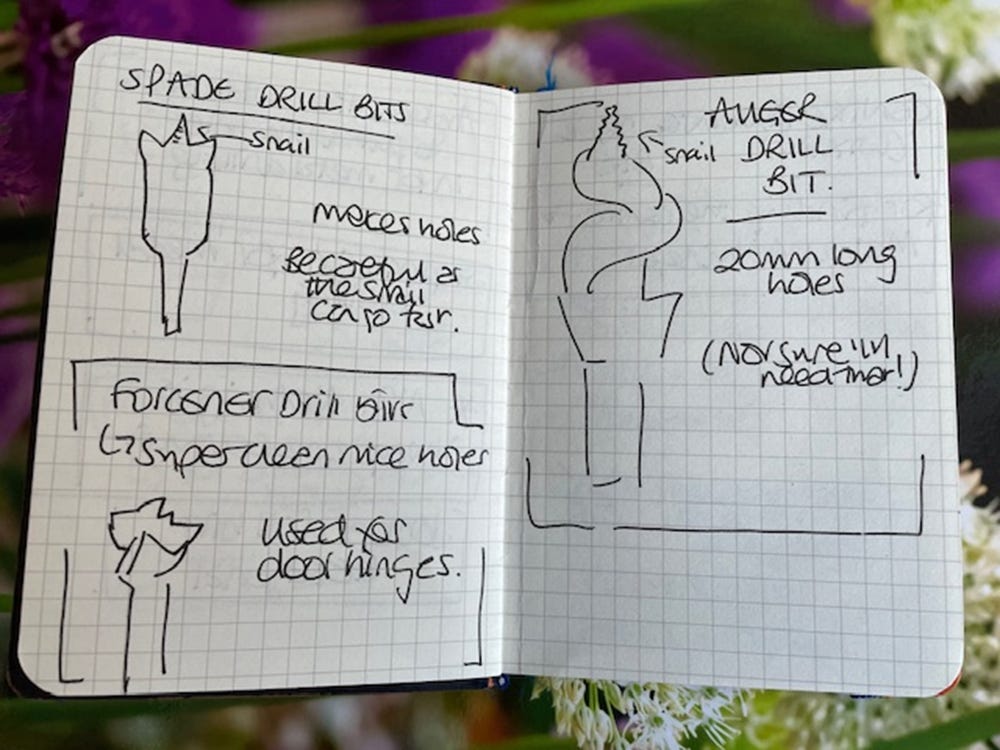 SPADE DRILL BITS
snail
makes holes
Be careful as
the snail
can go far.
Forcener Drill Bits
Super clean nice holes
used for
door hinges.
AUGER
snail DRILL
BIT.
20mm long
holes
(Not sure i'll
need that!)